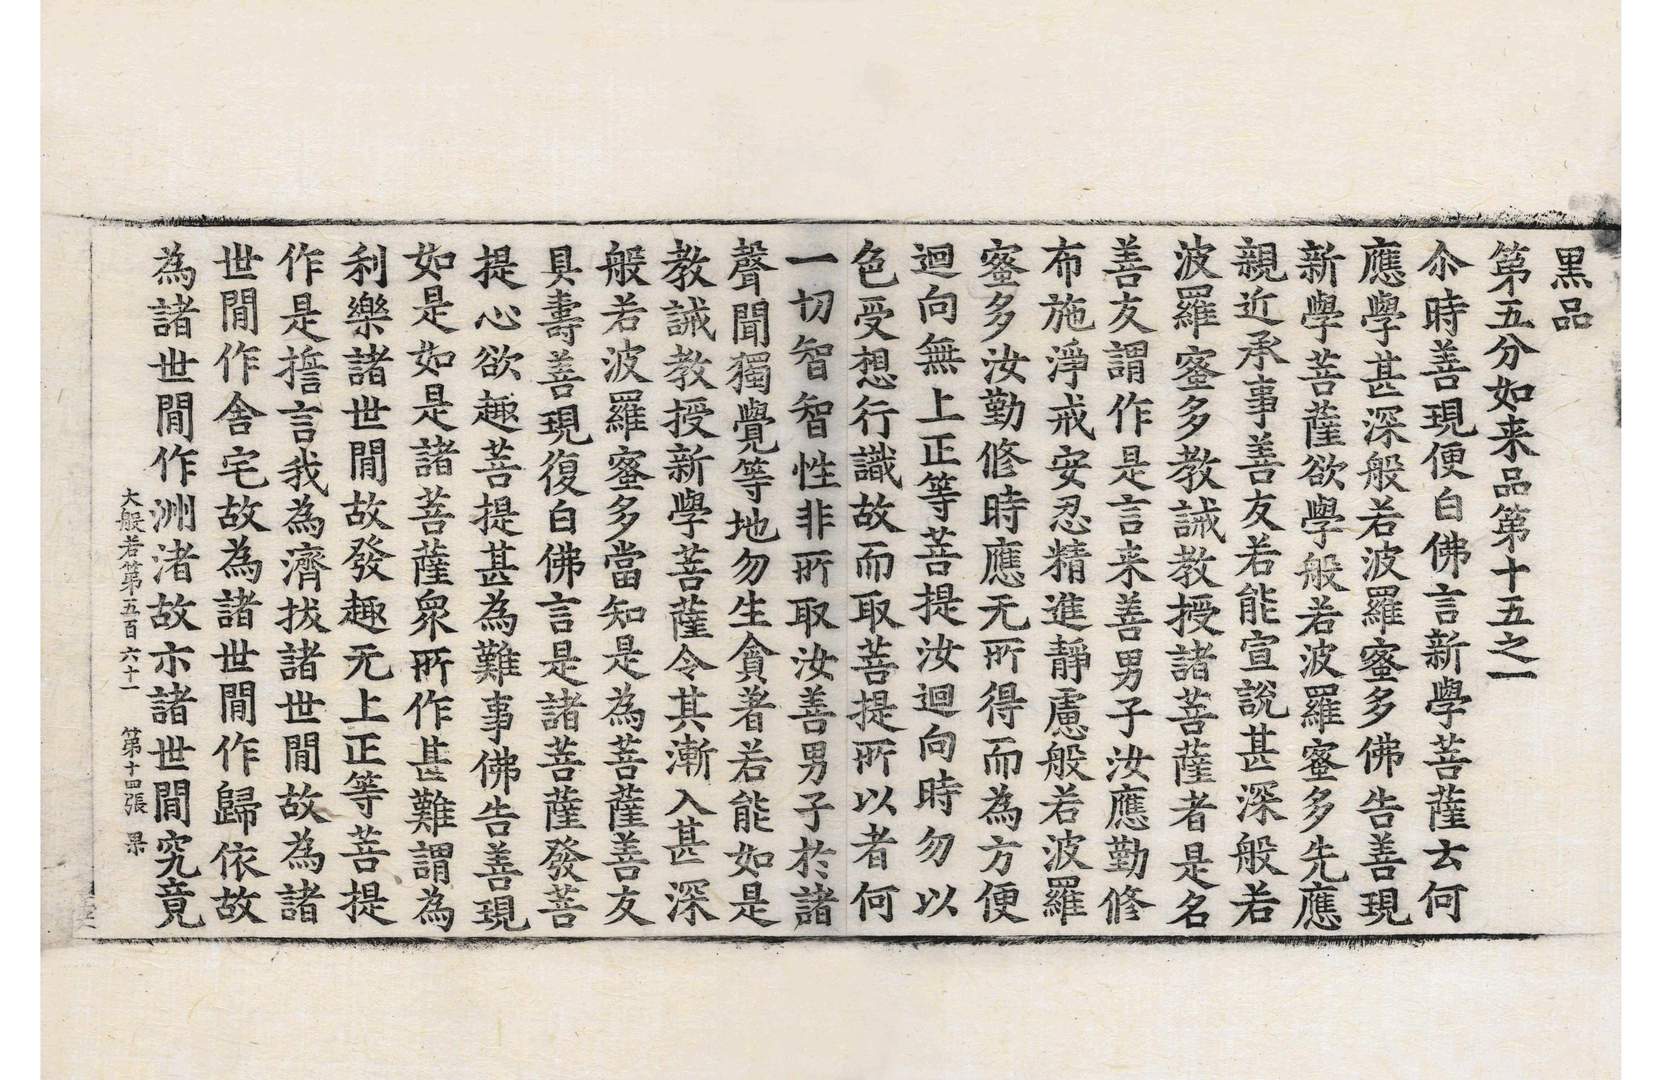 黑品
第五分如来品第十五之一
尒時善現便白佛言新學菩薩云何
應學甚深般若波羅蜜多佛告善現
新學菩薩欲學般若波羅蜜多先應
親近承事善友若能宣說甚深般若
波羅蜜多教誡教授諸菩薩者是名
善友謂作是言来善男子汝應勤修
布施淨戒安忍精進靜慮般若波羅
蜜多汝勤修時應无所得而為方便
迴向無上正等菩提汝迴向時勿以
色受想行識故而取菩提所以者何
一切智智性非所取汝善男子於諸
聲聞獨覺等地勿生貪著若能如是
教誡教授新學菩薩令其漸入甚深
般若波羅蜜多當知是為菩薩善友
具壽善現復白佛言是諸菩薩發菩
提心欲趣菩提甚為難事佛告善現
如是如是諸菩薩衆所作甚難謂為
利樂諸世間故發趣无上正等菩提
作是擔言我為濟拔諸世間故為諸
世間作舍宅故為諸世間作歸依故
為諸世間作洲渚故示諸世間究竟
大般若第五百六十一 第十四張 果